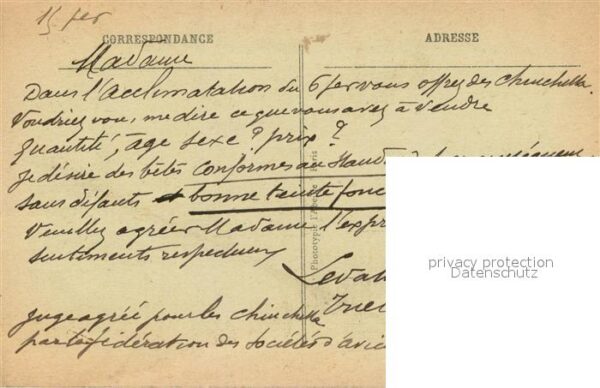 15 fer
CORRESPONDANCE
ADRESSE
Madame
Dans l'acclimatation du 6 fer vous offrez des chinchilla.
Voudriez vous, me dire ce que vous avez à vendre
Quantité, âge sexe? prix?
Je désire des bêtes conformes au Stand
sans défauts et bonne teinte fonc
Veuillez agréer Madame l'expr
sentiments respectueux
Leva
Juge agréé pour les chinchilla
par la fédération des Sociétés d'avic
Phototypie l'Abeille Paris
privacy protection
Datenschutz